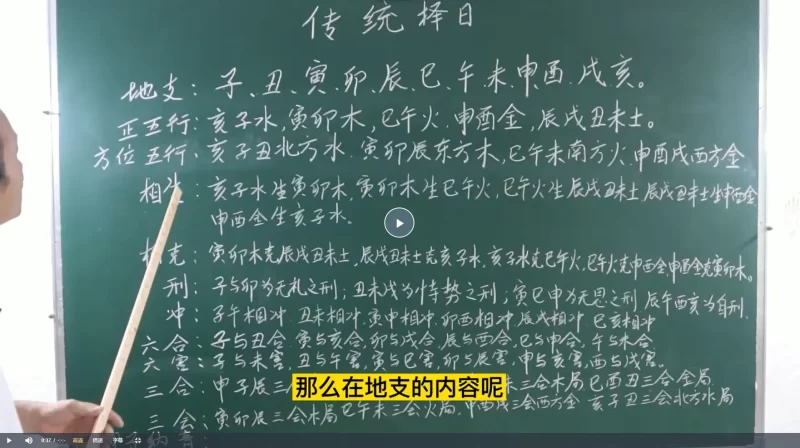 传统择日
地支：子、丑、寅、卯、辰、巳、午、未、申、酉、戌、亥。
正五行：亥子水，寅卯木，巳午火，申酉金，辰戌丑未土。
方位五行：亥子丑北方水，寅卯辰东方木，巳午未南方火，申酉戌西方金
相生：亥子水生寅卯木，寅卯木生巳午火，巳午火生辰戌丑未土，辰戌丑未土生申酉金
申酉金生亥子水。
相克：寅卯木克辰戌丑未土，辰戌丑未土克亥子水，亥子水克巳午火，巳午火克申酉金，申酉金克寅卯木。
刑：子与卯为无礼之刑；丑未戌为恃势之刑；寅巳申为无恩之刑，辰午酉亥为自刑
冲：子午相冲，丑未相冲，寅申相冲，卯酉相冲，辰戌相冲，巳亥相冲
六合：子与丑合，寅与亥合，卯与戌合，辰与酉合，巳与申合，午与未合
六害：子与未害，丑与午害，寅与巳害，卯与辰害，申与亥害，酉与戌害。
三合：申子辰三 三合木局 巳酉丑三合金局
那么在地支的内容呢
三会：寅卯辰三会木局 巳午未三会火局 申酉戌三会西方金 亥子丑三会北方水局